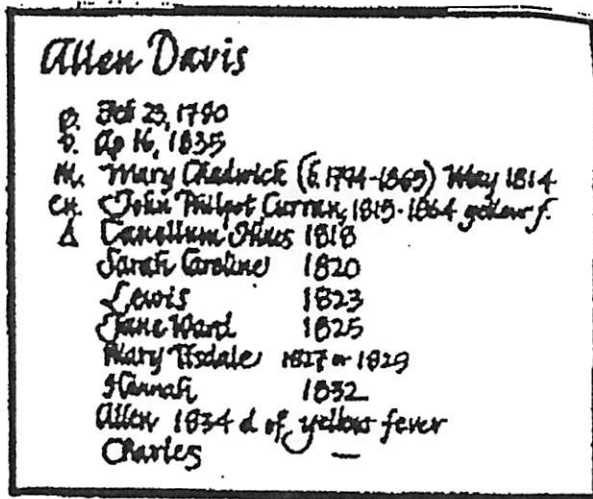 Allen Davis
B. Feb 23, 1790
D. Ap 16, 1835
M. Mary Chadwick (b. 1794-1865) May 1814
CH. John Philpot Curran, 1815-1864 yellow f.
Δ 1818
Sarah Caroline 1820
Lewis 1823
Jane Ward 1825
Mary Tisdale 1827 or 1829
Hannah 1832
Allen 1834 d of yellow fever
Charles —